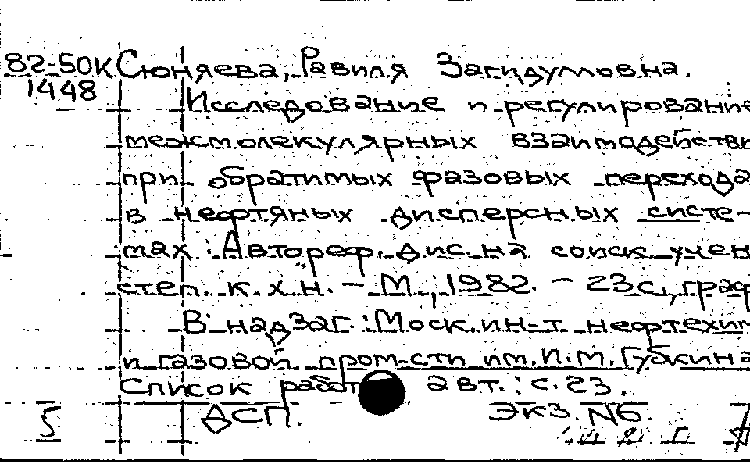 82-50К Сюняева, Равиля Загидулловна.
1448 Исследование и регулирование
межмолекулярных взаимодействи
при обратимых фазовых перехода
в нефтяных дисперсных систе-
мах : Автореф. дис. на соиск. учен
степ. к. х. н. – М., 1982. – 23 с., граф
В надзаг. : Моск. ин-т нефтехим
и газовой пром-сти им. И. М. Губкина
Список работ авт. : с. 23.
5 ДСП. Экз. №6.